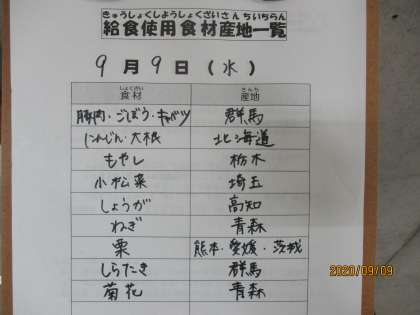 きゅうしょくしようしょくざいさんちいちらん
給食使用食材産地一覧
9月9日(水)
しょくざい さんち
食材 産地
豚肉・ごぼう・キャベツ 群馬
にんじん・大根 北海道
もやし 栃木
小松菜 埼玉
しょうが 高知
ねぎ 青森
栗 熊本・愛媛・茨城
しらたき 群馬
菊花 青森
2020/09/09